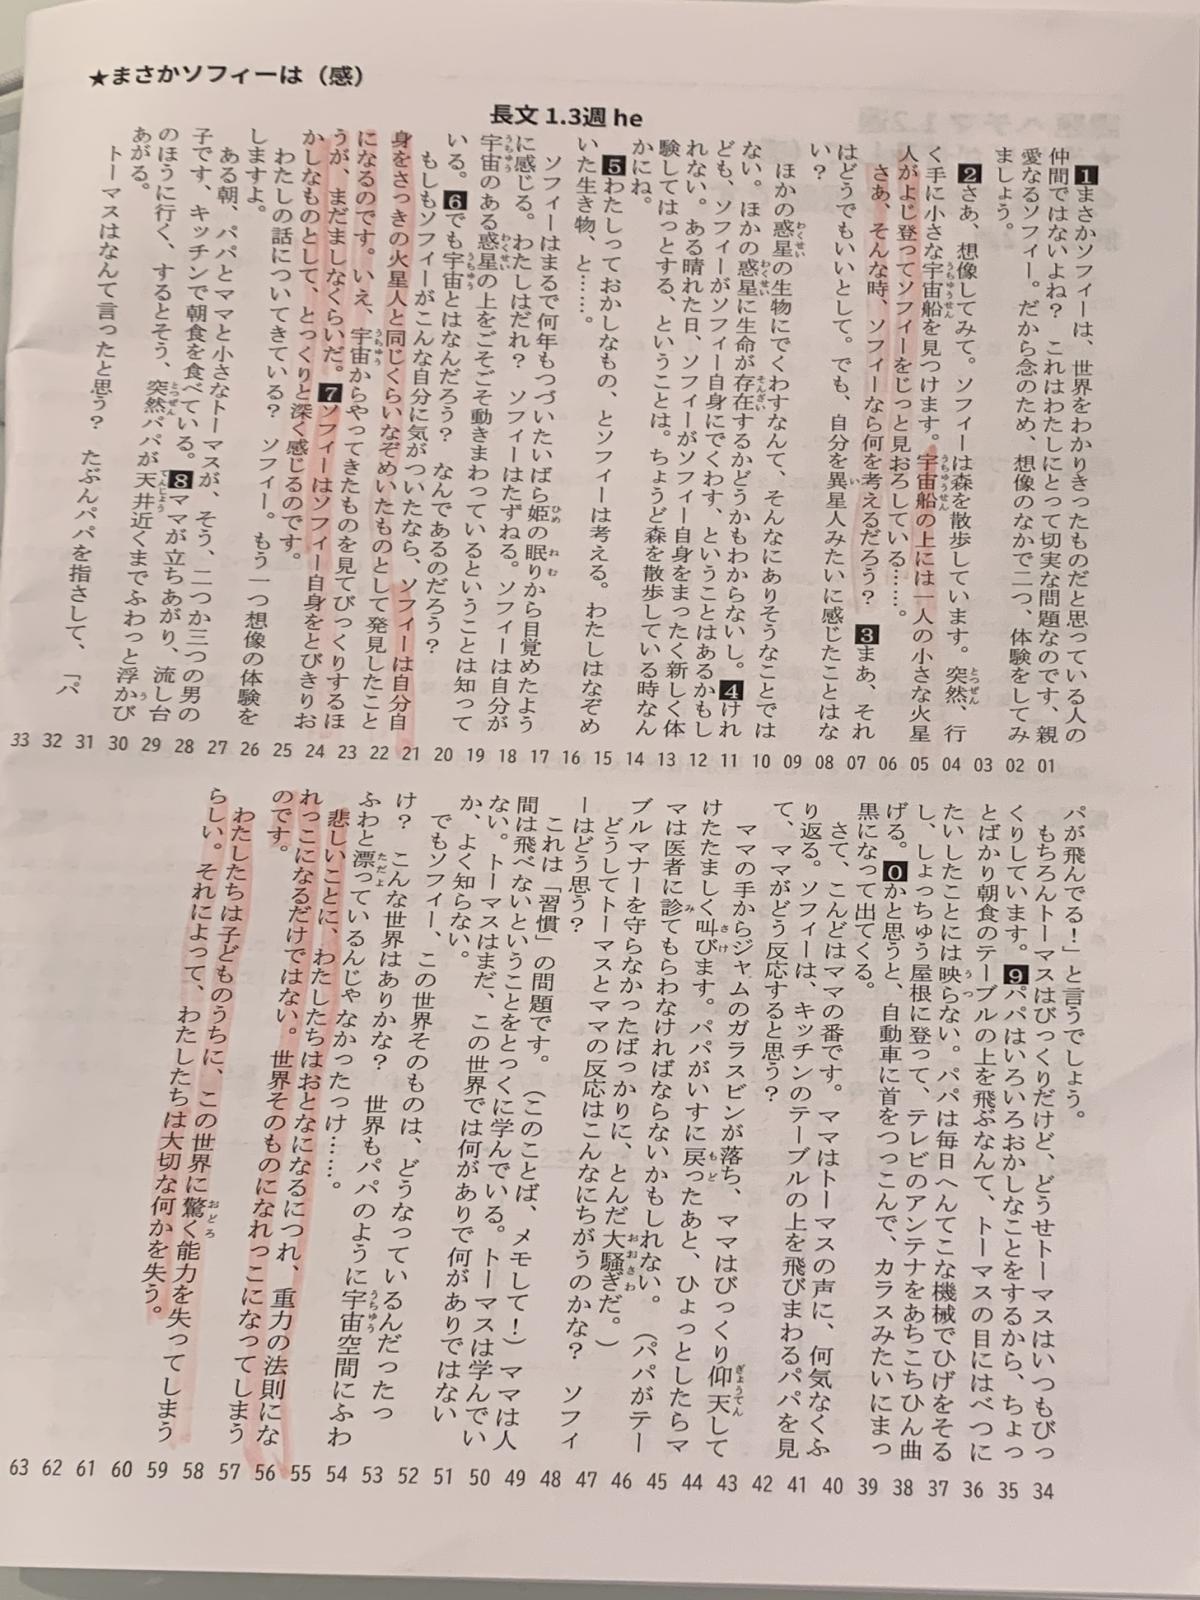 ★まさかソフィーは（感）
長文 1.3週 he
1まさかソフィーは、世界をわかりきったものだと思っている人の
仲間ではないよね？　これはわたしにとって切実な問題なのです、親
愛なるソフィー。だから念のため、想像のなかで二つ、体験をしてみ
ましょう。
2さあ、想像してみて。ソフィーは森を散歩しています。突然、行
く手に小さな宇宙船を見つけます。宇宙船の上には一人の小さな火星
人がよじ登ってソフィーをじっと見おろしている……。
さあ、そんな時、ソフィーなら何を考えるだろう？　3まあ、それ
はどうでもいいとして。でも、自分を異星人みたいに感じたことはな
い？
ほかの惑星の生物にでくわすなんて、そんなにありそうなことでは
ない。ほかの惑星に生命が存在するかどうかもわからないし。4けれ
ども、ソフィーがソフィー自身にでくわす、ということはあるかもし
れない。ある晴れた日、ソフィーがソフィー自身をまったく新しく体
験してはっとする、ということは。ちょうど森を散歩している時なん
かにね。
5わたしっておかしなもの、とソフィーは考える。わたしはなぞめ
いた生き物、と……。
ソフィーはまるで何年もつづいたいばら姫の眠りから目覚めたよう
に感じる。わたしはだれ？　ソフィーはたずねる。ソフィーは自分が
宇宙のある惑星の上をごそごそ動きまわっているということは知って
いる。6でも宇宙とはなんだろう？　なんであるのだろう？
もしもソフィーがこんな自分に気がついたなら、ソフィーは自分自
身をさっきの火星人と同じくらいなぞめいたものとして発見したこと
になるのです。いえ、宇宙からやってきたものを見てびっくりするほ
うが、まだましなくらいだ。7ソフィーはソフィー自身をとびきりお
かしなものとして、とっくりと深く感じるのです。
わたしの話についてきている？　ソフィー。もう一つ想像の体験を
しますよ。
ある朝、パパとママと小さなトーマスが、そう、二つか三つの男の
子です、キッチンで朝食を食べている。8ママが立ちあがり、流し台
のほうに行く、するとそう、突然パパが天井近くまでふわっと浮かび
あがる。
トーマスはなんて言ったと思う？　たぶんパパを指さして、「パ
01 02 03 04 05 06 07 08 09 10 11 12 13 14 15 16 17 18 19 20 21 22 23 24 25 26 27 28 29 30 31 32 33
パが飛んでる！」と言うでしょう。
もちろんトーマスはびっくりだけど、どうせトーマスはいつもびっ
くりしています。9パパはいろいろおかしなことをするから、ちょっ
とばかり朝食のテーブルの上を飛ぶなんて、トーマスの目にはべつに
たいしたことには映らない。パパは毎日へんてこな機械でひげをそる
し、しょっちゅう屋根に登って、テレビのアンテナをあちこちひん曲
げる。0かと思うと、自動車に首をつっこんで、カラスみたいにまっ
黒になって出てくる。
さて、こんどはママの番です。ママはトーマスの声に、何気なくふ
り返る。ソフィーは、キッチンのテーブルの上を飛びまわるパパを見
て、ママがどう反応すると思う？
ママの手からジャムのガラスビンが落ち、ママはびっくり仰天して
けたたましく叫びます。パパがいすに戻ったあと、ひょっとしたらマ
マは医者に診てもらわなければならないかもしれない。（パパがテー
ブルマナーを守らなかったばっかりに、とんだ大騒ぎだ。）
どうしてトーマスとママの反応はこんなにちがうのかな？　ソフィ
ーはどう思う？
これは「習慣」の問題です。（このことば、メモして！）ママは人
間は飛べないということをとっくに学んでいる。トーマスは学んでい
ない。トーマスはまだ、この世界では何がありで何がありではない
か、よく知らない。
でもソフィー、この世界そのものは、どうなっているんだったっ
け？　こんな世界はありかな？　世界もパパのように宇宙空間にふわ
ふわと漂っているんじゃなかったっけ……。
悲しいことに、わたしたちはおとなになるにつれ、重力の法則にな
れっこになるだけではない。世界そのものになれっこになってしまう
のです。
わたしたちは子どものうちに、この世界に驚く能力を失ってしまう
らしい。それによって、わたしたちは大切な何かを失う。
34 35 36 37 38 39 40 41 42 43 44 45 46 47 48 49 50 51 52 53 54 55 56 57 58 59 60 61 62 63